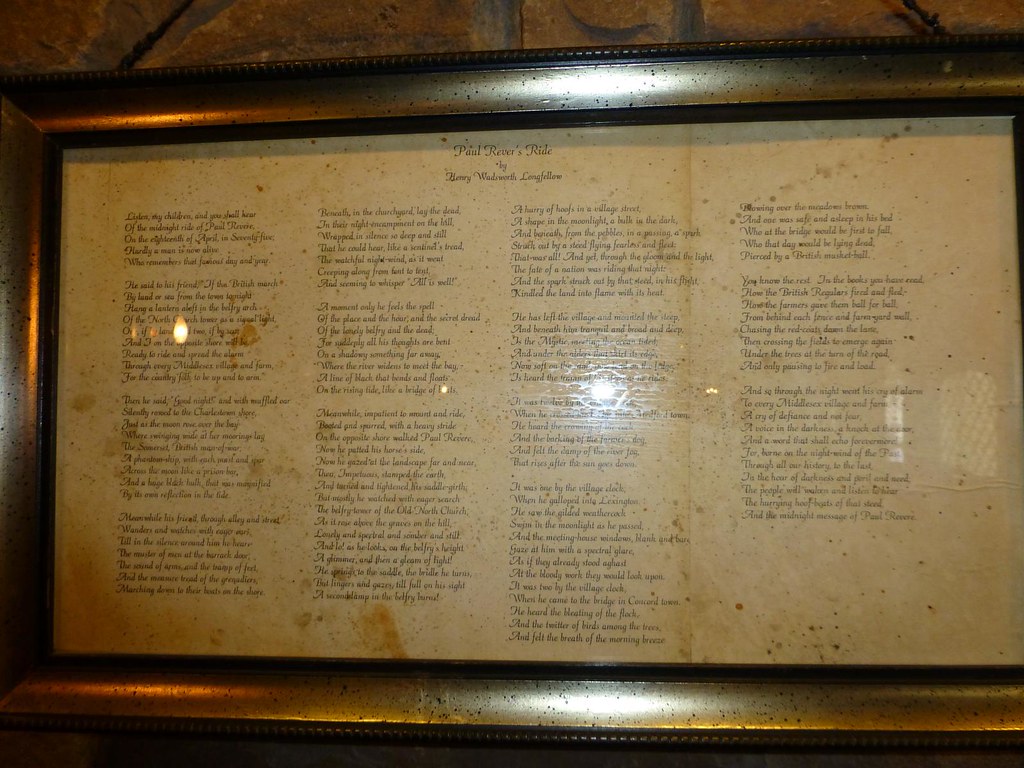 Paul Rever's Ride
by
Henry Wadsworth Longfellow
Listen, my children, and you shall hear
Of the midnight ride of Paul Revere,
On the eighteenth of April, in Seventy-five;
Hardly a man is now alive
Who remembers that famous day and year.
He said to his friend, "If the British march
By land or sea from the town tonight
Hang a lantern aloft in the belfry arch
Of the North Church tower as a signal light,
if by sea
And I on the opposite shore will be,
Ready to ride and spread the alarm
Through every Middlesex village and farm,
For the country folk to be up and to arm."
Then he said, "Good night!" and with muffled oar
Silently rowed to the Charlestown shore,
Just as the moon rose over the bay
Where swinging wide at her moorings lay
The Somerset, British man-of-war;
A phantom ship, with each mast and spar
Across the moon like a prison bar,
And a huge black hulk, that was magnified
By its own reflection in the tide.
Meanwhile his friend, through alley and street
Wanders and watches with eager ears,
Till in the silence around him he hears
The muster of men at the barrack door,
The sound of arms, and the tramp of feet,
And the measure tread of the grenadiers,
Marching down to their boats on the shore.
Beneath, in the churchyard, lay the dead,
In their night-encampment on the hill,
Wrapped in silence so deep and still
That he could hear, like a sentinel's tread,
The watchful night-wind, as it went
Creeping along from tent to tent,
And seeming to whisper "All is well!"
A moment only he feels the spell
Of the place and the hour, and the secret dread
Of the lonely belfry and the dead;
For suddenly all his thoughts are bent
On a shadowy something far away,
Where the river widens to meet the bay, -
A line of black that bends and floats
On the rising tide, like a bridge of boats.
Meanwhile, impatient to mount and ride,
Booted and spurred, with a heavy stride
On the opposite shore walked Paul Revere,
Now he patted his horse's side,
Now he gazed at the landscape far and near,
Then, Impetuous, stamped the earth,
And turned and tightened his saddle-girth;
But mostly he watched with eager search
The belfry-tower of the Old North Church,
As it rose above the graves on the hill,
Lonely and spectral and somber and still
And lo! as he looks, on the belfry's height
A glimmer, and then a gleam of light!
He springs to the saddle, the bridle he turns,
But lingers and gazes, till full on his sight
A second lamp in the belfry burns!
A hurry of hoofs in a village street,
A shape in the moonlight, a bulk in the dark,
And beneath, from the pebbles, in a passing, a spark
Struck out by a steed flying fearless and fleet:
That was all! And yet, through the gloom and the light,
The fate of a nation was riding that night;
And the spark struck out by that steed, in his flight,
Kindled the land into flame with its heat.
He has left the village and mounted the steep,
And beneath him tranquil and broad and deep,
Is the Mystic, meeting the ocean tides;
And under the alders that skirt its edge,
Now soft on the sand, now loud on the ledge,
Is heard the tramp of his steed as he rides.
It was twelve by the village
When he crossed the bridge into Medford town.
He heard the crowing of the cock
And the barking of the farmer's dog,
And felt the damp of the river fog,
That rises after the sun goes down.
It was one by the village clock,
When he galloped into Lexington.
He saw the gilded weathercock
Swim in the moonlight as he passed,
And the meeting-house windows, blank and bare
Gaze at him with a spectral glare,
As if they already stood aghast
At the bloody work they would look upon.
It was two by the village clock,
When he came to the bridge in Concord town.
He heard the bleating of the flock,
And the twitter of birds among the trees,
And felt the breath of the morning breeze
Blowing over the meadows brown.
And one was safe and asleep in his bed
Who at the bridge would be first to fall,
Who that day would be lying dead,
Pierced by a British musket-ball.
You know the rest. In the books you have read,
How the British Regulars fired and fled,-
How the farmers gave them ball for ball,
From behind each fence and farm-yard wall,
Chasing the red-coats down the lane,
Then crossing the fields to emerge again
Under the trees at the turn of the road,
And only pausing to fire and load.
And so through the night went his cry of alarm
To every Middlesex village and farm,
A cry of defiance and not fear,
A voice in the darkness, a knock at the door,
And a word that shall echo forevermore!
For, borne on the night-wind of the Past,
Through all our history, to the last,
In the hour of darkness and peril and need,
The people will waken and listen to hear
The hurrying hoof-beats of that steed,
And the midnight message of Paul Revere.